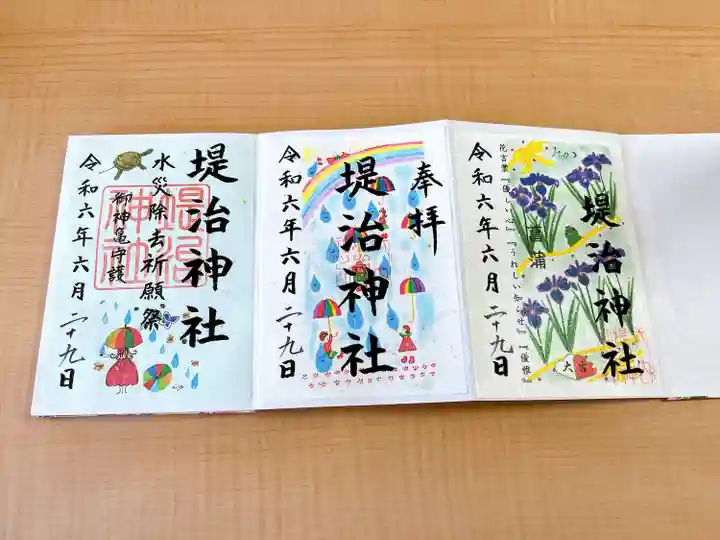 堤治神社
水災除去祈願祭
御神亀守護
令和六年六月二十九日
堤治神社
奉拝
堤治神社
令和六年六月二十九日
堤治神社
菖蒲
大吉
花言葉『優しい心』『うれしい知らせ』『優雅』
令和六年六月二十九日